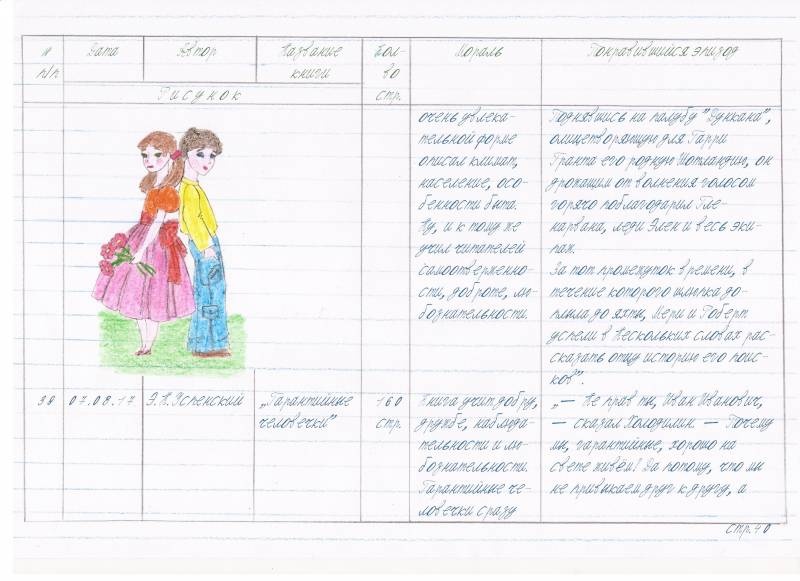 № п/п
Дата
Автор
Название книги
Кол-во стр.
Мораль
Понравившийся эпизод
Рисунок
очень увлека-
тельной форме
описал климат,
население, осо-
бенности быта.
Ну, и к тому же
учил читателей
самоотверженно-
сти, доброте, лю-
бознательности.
Поднявшись на палубу "Дункана",
олицетворяющую для Гарри
Гранта его родную Шотландию, он
дрожащим от волнения голосом
горячо поблагодарил Гле-
нарвана, леди Элен и весь эки-
паж.
За тот промежуток времени, в
течение которого шлюпка до-
плыла до яхты, Мери и Роберт
успели в нескольких словах рас-
сказать отцу историю его поис-
ков".
38
07.08.17
Э.Н.Успенский
„Гарантийные
человечки”
160
стр.
Книга учит добру,
дружбе, наблюда-
тельности и лю-
бознательности.
Гарантийные че-
ловечки сразу
„— Не прав ты, Иван Иванович,
— сказал Холодилин. — Почему
мы, гарантийные, хорошо на
свете живём? Да потому, что мы
не привыкаем друг к другу, а
стр.40